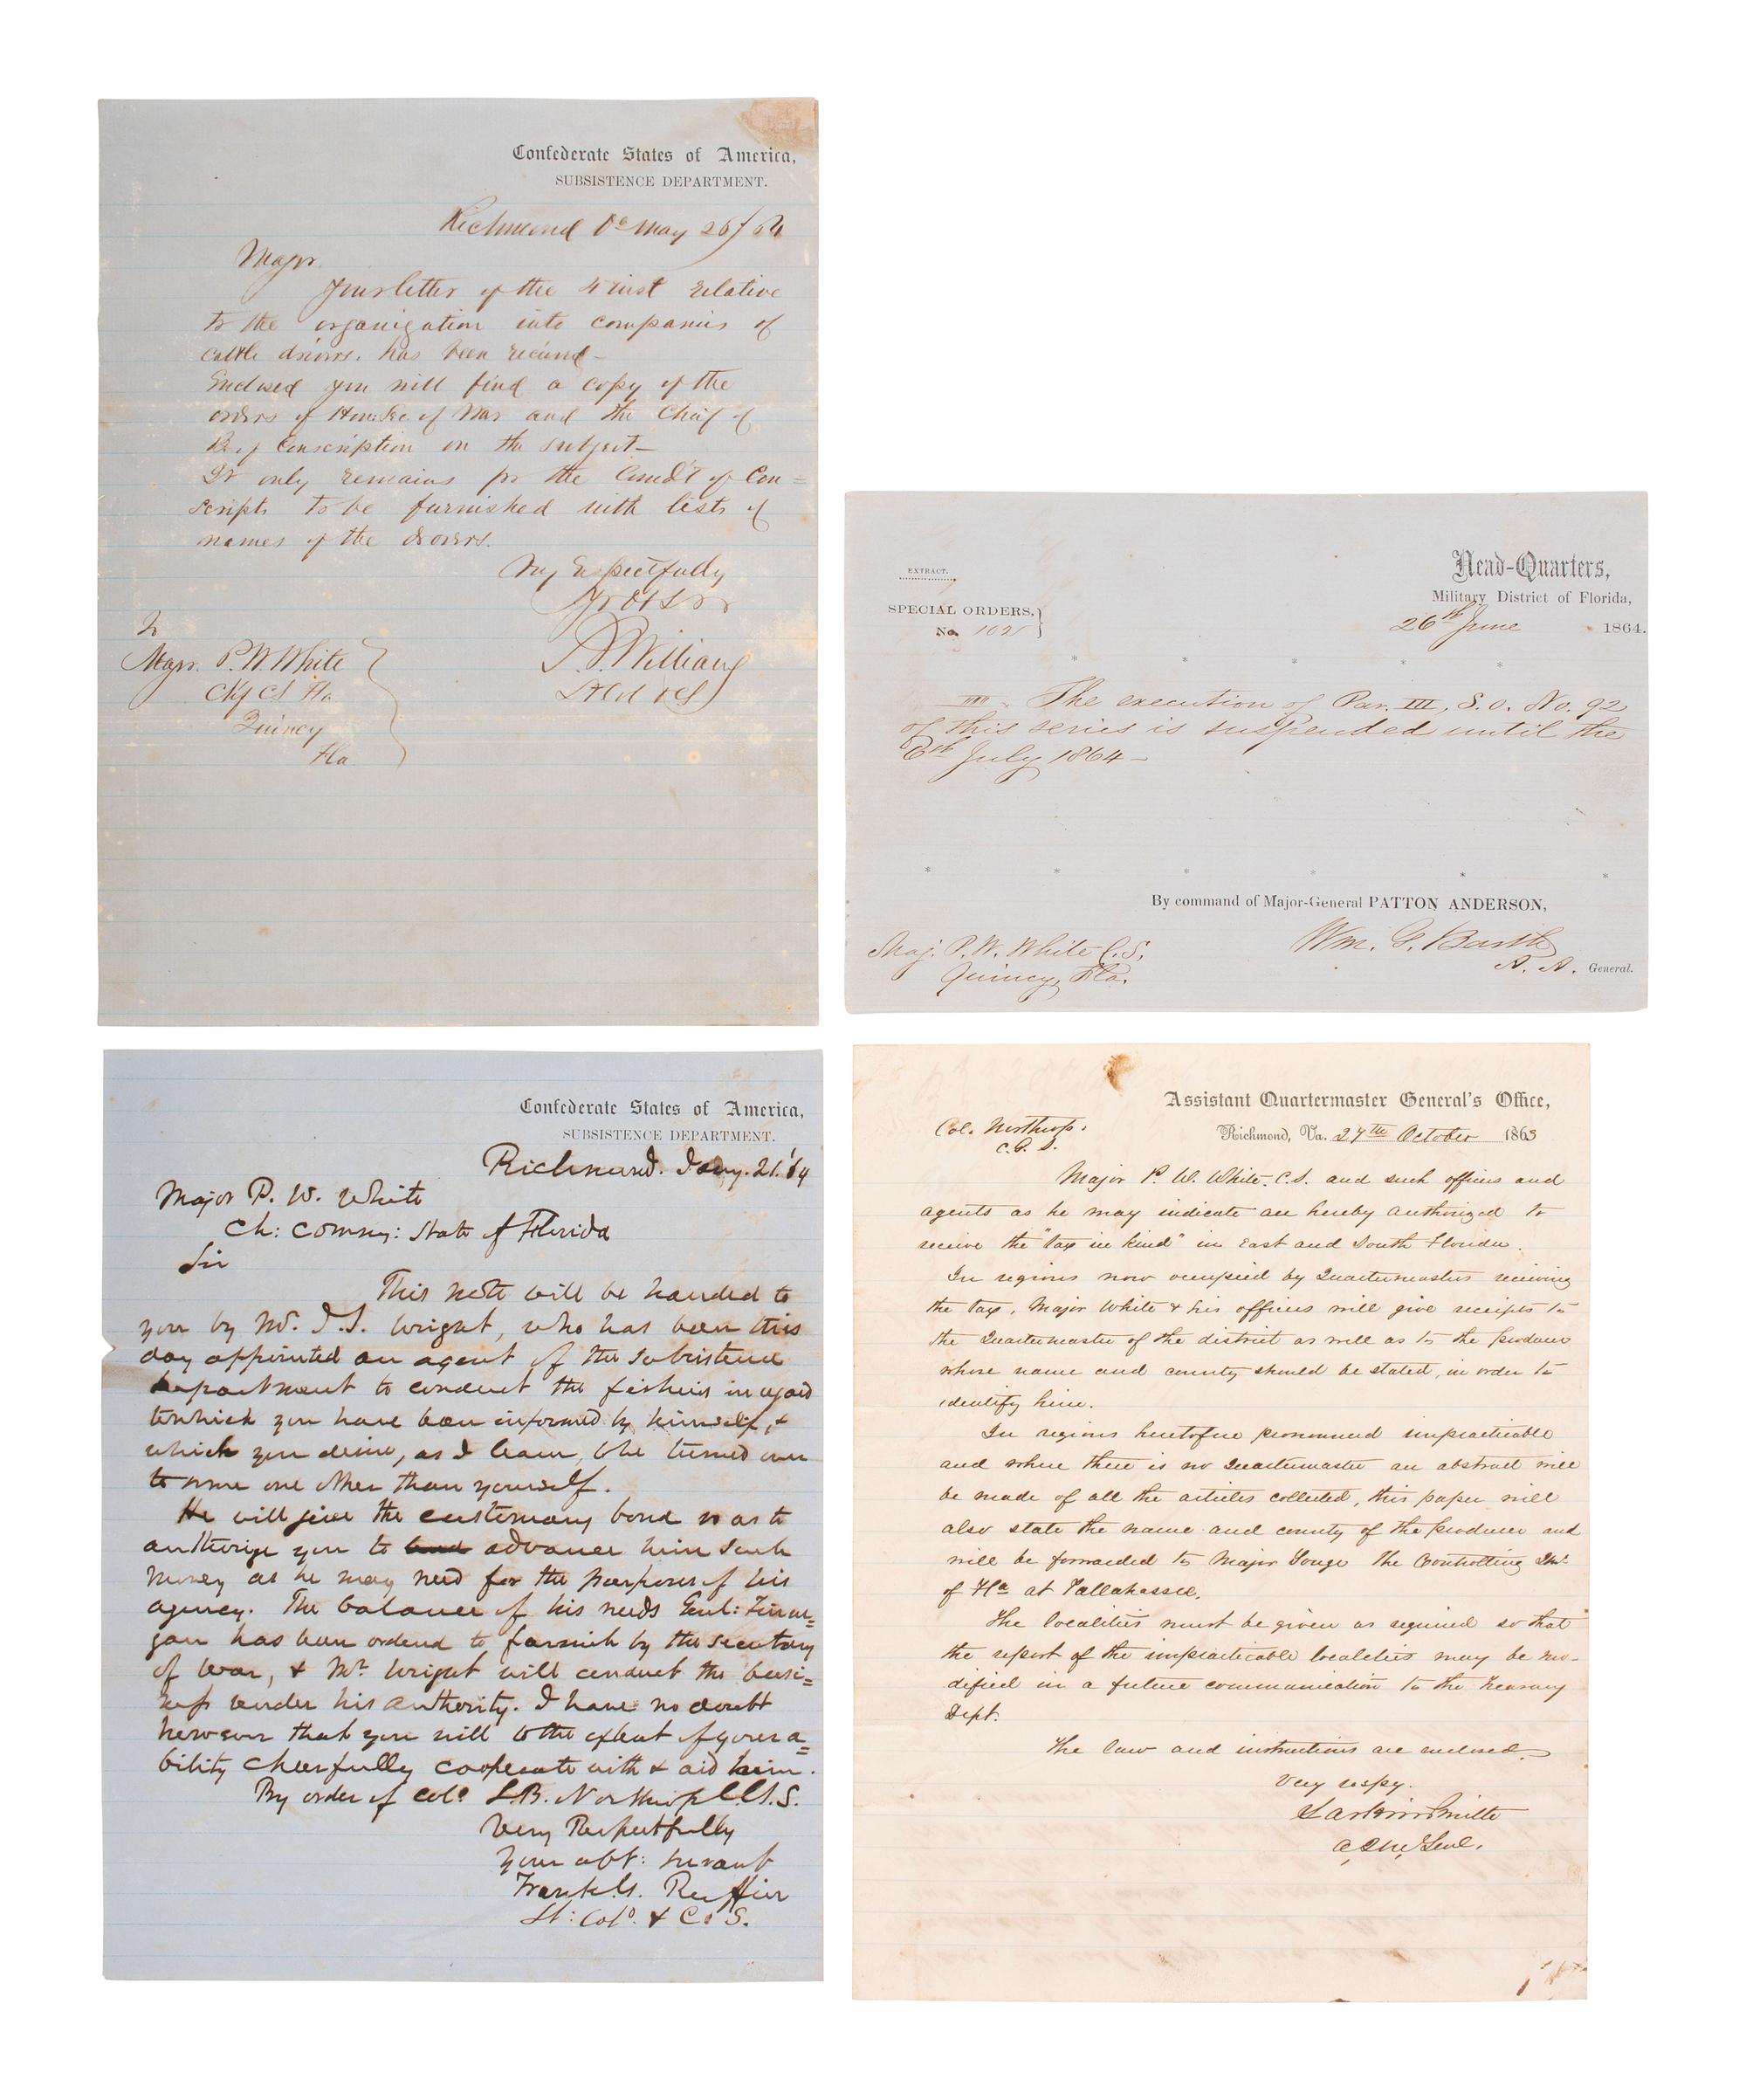 Confederate States of America,
SUBSISTENCE DEPARTMENT.
Richmond Va May 26/64
Major
Your letter of the 4 inst relative
to the organization into companies of
cattle drivers, has been received —
Enclosed you will find a copy of the
orders of Hon. Sec of War and the Chief of
Bu of Conscription on the subject —
It only remains for the Comd't of Con=
scripts to be furnished with lists of
names of the drovers.
Very Respectfully
Yr Obt Svr
Williams
To
Major. P. W. White
Chf CS Fla
Quincy
Fla
EXTRACT.
SPECIAL ORDERS,
No. 102
Head-Quarters,
Military District of Florida,
26th June 1864.
* * * * *
III. The execution of Par. III, S. O. No. 92
of this series is suspended until the
6th July 1864 —
* * * * * *
By command of Major-General PATTON ANDERSON,
Wm. G. Barth
A. A. General.
Maj. P. W. White C. S,
Quincy, Fla.
Confederate States of America,
SUBSISTENCE DEPARTMENT.
Richmond. Jany. 21. '64
Major P. W. White
Ch: Commy: State of Florida
Sir
This note will be handed to
you by Mr. J. S. Wright, who has been this
day appointed an agent of the Subsistence
Department to conduct the fisheries in regard
to which you have been informed by himself, &
which you desire, as I learn, to be turned over
to some one other than yourself.
He will give the customary bond so as to
authorize you to advance him such
money as he may need for the purposes of his
agency. The balance of his needs Genl: Finne=
gan has been ordered to furnish by the Secretary
of War, & Mr. Wright will conduct the busi=
ness under his authority. I have no doubt
however that you will to the extent of your a=
bility cheerfully cooperate with & aid him.
By order of Colo L. B. Northrop C. G. S.
Very Respectfully
Your obt: servant
Frank G. Ruffin
Lt: Colo. & C. S.
Assistant Quartermaster General's Office,
Col. Northrop.
C. G. S.
Richmond, Va. 27th October 1863
Major P. W. White. C.S. and such officers and
agents as he may indicate are hereby authorized to
receive the "tax in kind" in East and South Florida.
In regions now occupied by Quartermasters receiving
the tax, Major White & his officers will give receipts to
the Quartermaster of the district as well as to the producer
whose name and county should be stated, in order to
identify him.
In regions heretofore pronounced impracticable
and where there is no Quartermaster an abstract will
be made of all the articles collected, this paper will
also state the name and county of the producer and
will be forwarded to Major Yonge the Controlling Qr.
of Fla at Tallahassee.
The localities must be given as required so that
the report of the impracticable localities may be mo-
dified in a future communication to the Treasury
Dept.
The law and instructions are enclosed.
Very respy.
Larkin Smith
A. Q. M. Genl.